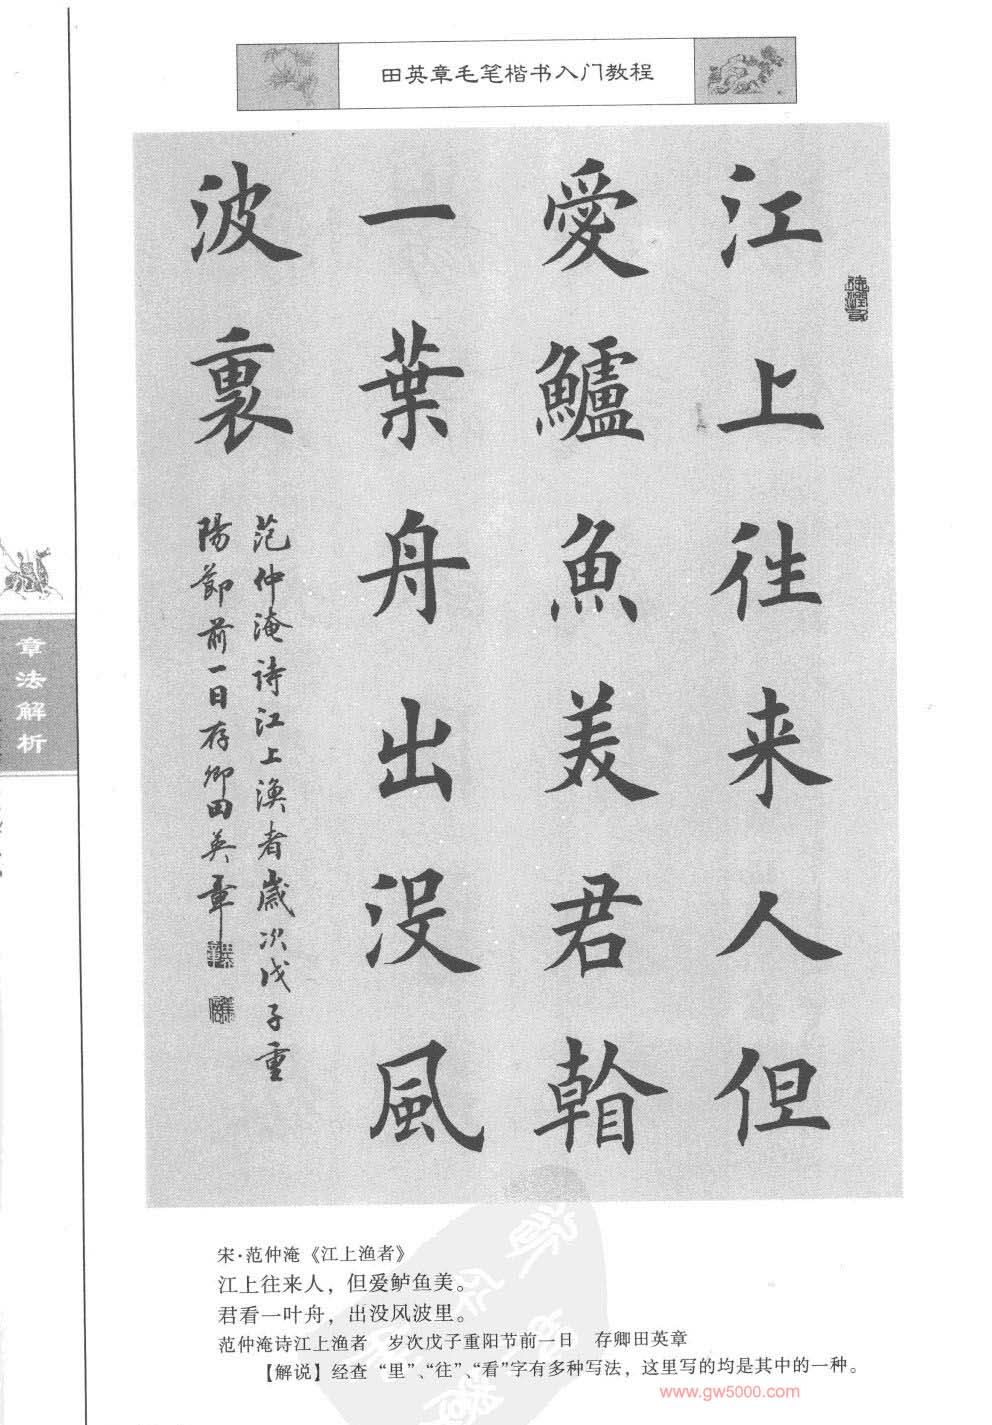 田英章毛笔楷书入门教程
江上往来人但
愛鱸魚美君翰
一葉舟出没風
波裏
范仲淹诗江上渔者歲次戊子重
陽節前一日存卿田英章
章法解析
宋·范仲淹《江上渔者》
江上往来人，但爱鲈鱼美。
君看一叶舟，出没风波里。
范仲淹诗江上渔者　岁次戊子重阳节前一日　存卿田英章
【解说】经查“里”、“往”、“看”字有多种写法，这里写的均是其中的一种。
www.gw5000.com